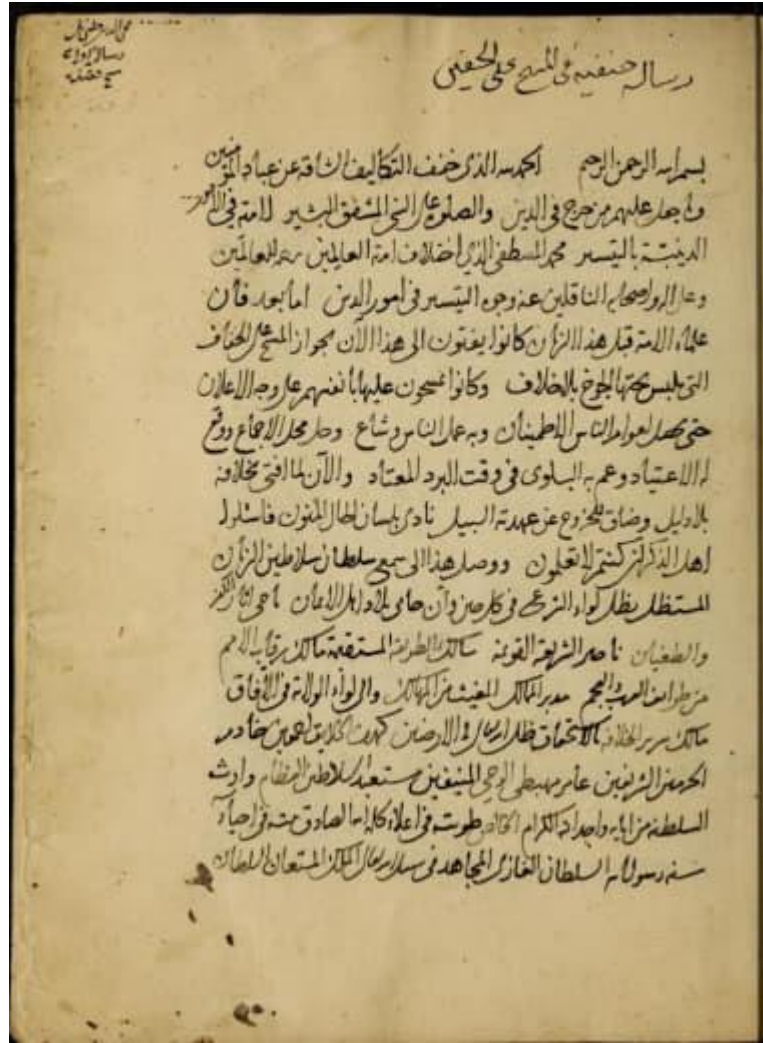 رسالة حنفية في المسح على الخفين
بسم الله الرحمن الرحيم الحمد لله الذي خفف التكاليف الشاقة عن عباده المؤمنين
وما جعل عليهم من حرج في الدين والصلوة على النبي المشفق البشير لامته في الأمور
الدينية بالتيسير محمد المصطفى الذي رحمة للعالمين
وعلى اله واصحابه الناقلين عنه وجوه التيسير في امور الدين اما بعد فان
علماء الامة قبل هذا الزمان كانوا يفتون الى هذا الآن بجواز المسح على الخفاف
التي يلبس تحتها الجوخ بلا خلاف وكانوا يمسحون عليها بانفسهم على وجه الاعلان
حتى يحصل لعوام الناس الاطمئنان وبه عمل الناس وشاع وحل محل الاجماع ووقع
له الاعتياد وعم به البلوى في وقت البرد المعتاد والآن لما افتى بخلافه
بلا دليل وضاق للخروج عن عهدته السبيل نادى بلسان الحال فاسئلوا
اهل الذكر ان كنتم لا تعلمون ووصل هذا الى سمع سلطان سلاطين الزمان
المستظل بظل لواء الشرع في كل حين وآن حامي بلاد اهل الايمان ماحي آثار الكفر
والطغيان ناصر الشريعة القويمة سالك الطريقة المستقيمة مالك رقاب الامم
من طوائف العرب والعجم مدبر الممالك المغيث من المهالك والي لواء الولاية في الآفاق
مالك سرير الخلافة بالاستحقاق ظل الله تعالى في الارضين كهف الخلايق اجمعين خادم
الحرمين الشريفين عامر مهبطي الوحي المنيفين مستعبد السلاطين العظام وارث
السلطنة من آبائه واجداده الكرام الخالص طويته في اعلاء كلمة الله الصادق في احياء
سنة رسول الله السلطان الغازي المجاهد في سبيل الله تعالى الملك المستعان السلطان